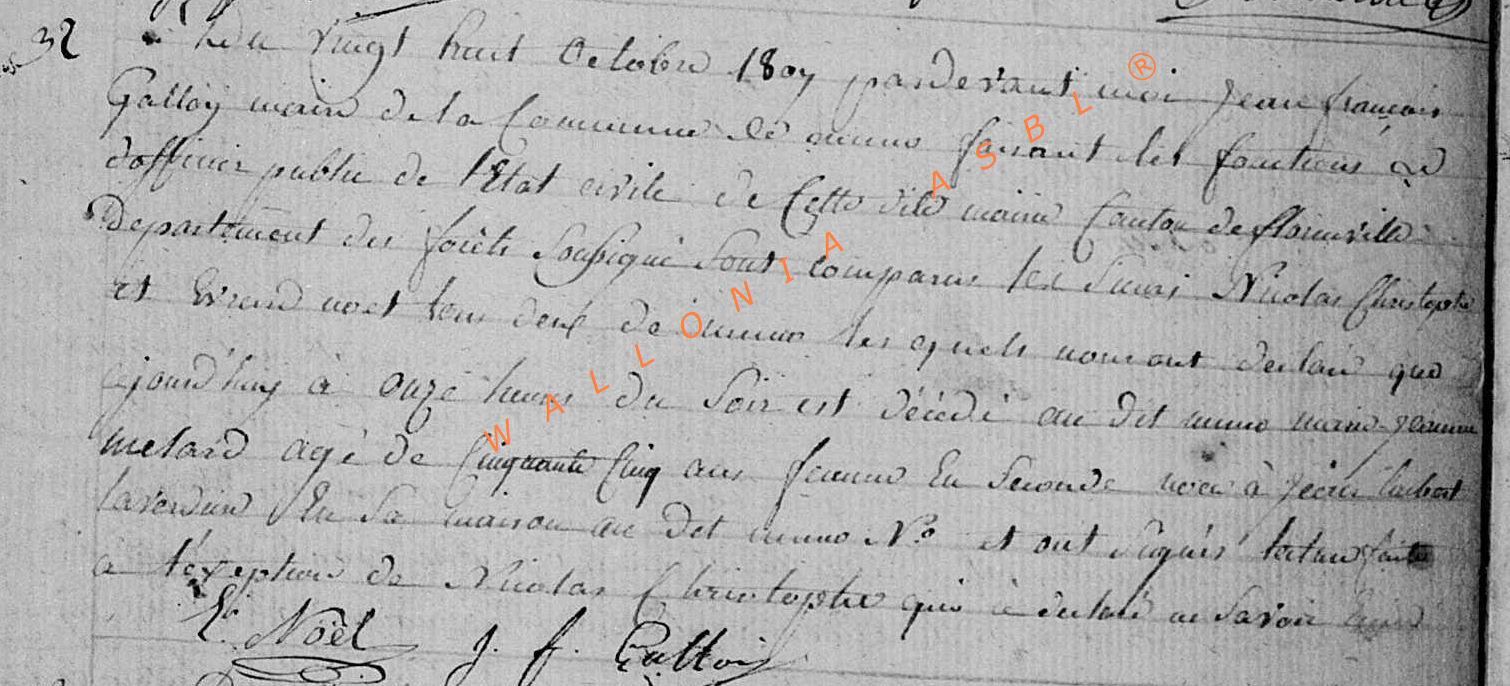 32
vingt huit Octobre 1807 pardevant moi Jean françois
Galloy maire de la Commune de muno faisant les fonctions
d'officier public de l'Etat civile de Cette dite mairie Canton de florenville
Departement des forêts Soussigné Sont Comparus les Nicolas Christophe
et noel tous deux de muno les quels nous ont declaré que
ajourd'huy à onze heures du Soir est décédé au dit muno marie Jeanne
melard agé de Cinquante Cinq ans femme En Seconde noce à Jean
En Sa maison au dit muno N.º et ont signés faite
à l'exeption de Nicolas Christophe qui à declaré ne Savoir
Noël J. f. Galloy
WALLONIA ASBL ®